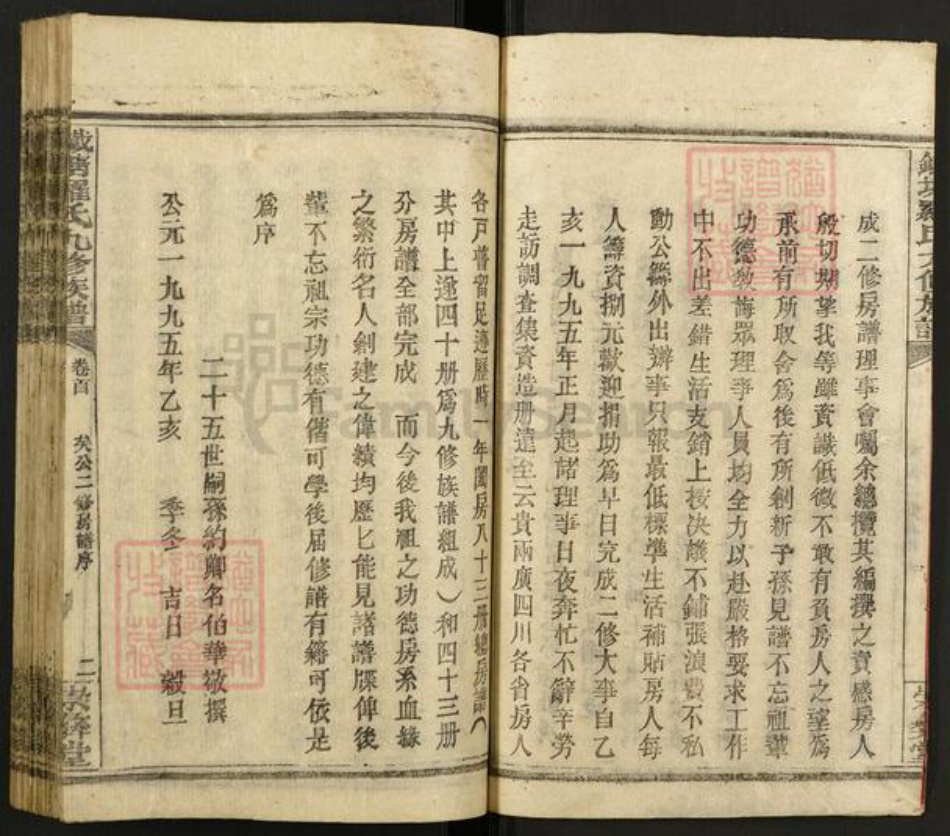 成二修房譜理事會囑余總攬其編撰之責感房人
殷切期望我等雖資識低微不敢有負房人之望爲
承前有所取舍爲後有所創新予孫見譜不忘祖輩
功德教誨眾理事人員均全力以赴嚴格要求工作
中不出差錯生活支銷上按决議不鋪張浪費不私
動公繇外出辦事只報最低標準生活補貼房人每
人籌資捌元歡迎捐助爲早日完成二修大事自乙
亥一九九五年正月起諸理事日夜奔忙不辭辛勞
走訪調查集資造册遠至云貴兩廣四川各省房人
各戸普留足迹歷時一年闔房八十三册總房譜（
其中上遞四十册爲九修族譜組成）和四十三册
分房譜全部完成 而今後我祖之功德房系血緣
之繁衍名人創建之偉績均歷匕能見諸譜牒俾後
輩不忘祖宗功德有偕可學後届修譜有籍可依是
爲序
二十五世嗣孫約卿名伯華敬撰
公元一九九五年乙亥 季冬 吉日 穀旦
羅氏九修族譜
卷首
矣公二修房譜序
二
FamilySearch